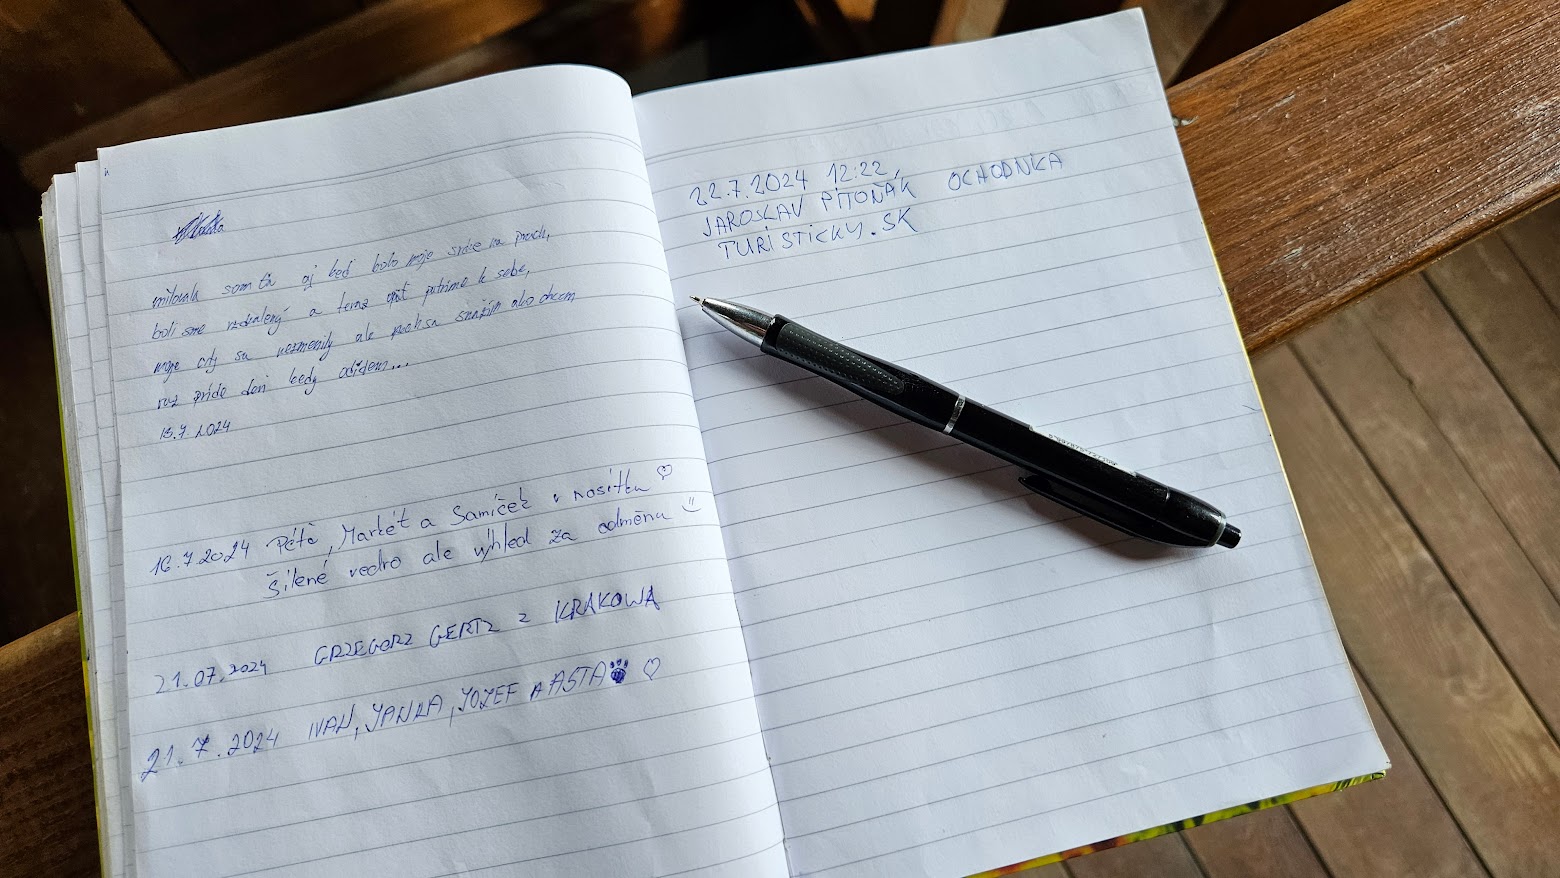 milovala som ťa aj keď bolo moje srdce na prach,
boli sme vzdialený a teraz opäť patríme k sebe,
moje city sa nezmenily ale snažím ako chcem
raz príde deň kedy odídem...
13.7.2024
16.7.2024 Péťa, Markét a Samíček v nosítku ♡
Šílené vedro ale výhled za odměnu
21.07.2024 GRZEGORZ GERTZ z KRAKOWA
21.7.2024 IVAN, JANKA, JOZEF A ASTA ♡
22.7.2024 12:22,
JAROSLAV PITOŇÁK OCHODNICA
TURISTICKY.SK